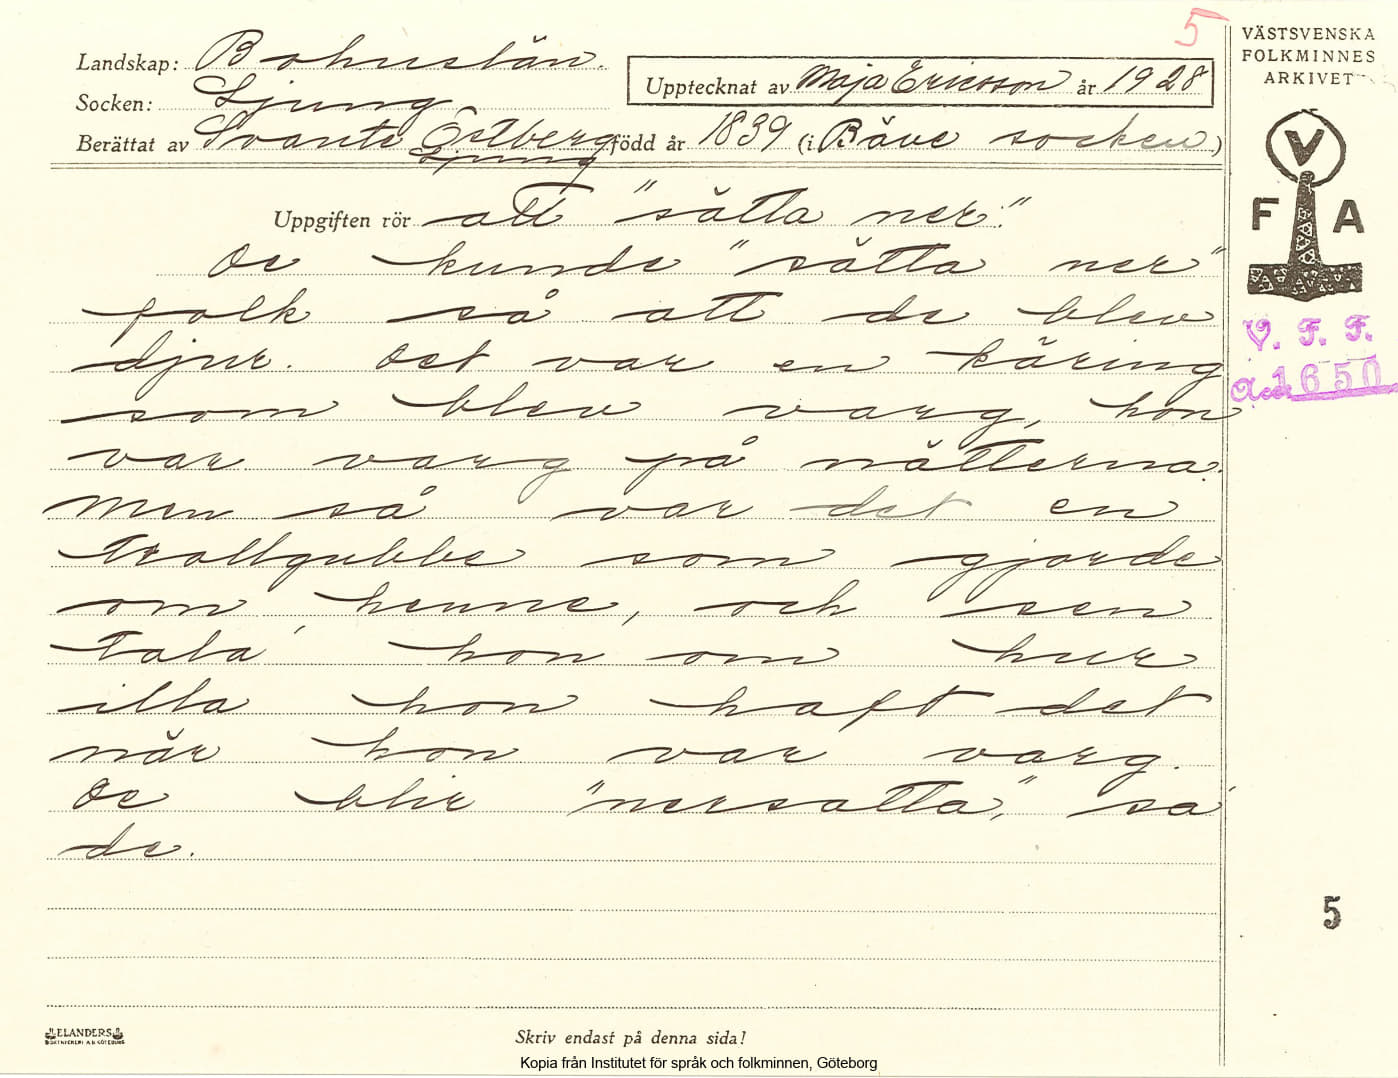 5
VÄSTSVENSKA
FOLKMINNES
ARKIVET
Landskap: Bohuslän.
Upptecknat av Maja Ericsson år 1928
Socken: Ljung
Berättat av Svante Östberg född år 1839 (i Bäve socken)
Ljung
V
F A
Uppgiften rör att "sätta ner."
De kunde "sätta ner"
folk så att de blev
djur. Det var en käring
som blev varg, hon
var varg på nätterna.
Men så var det en
trollgubbe som gjorde
om henne, och sen
tala' hon om hur
illa hon haft det
när hon var varg.
De blir "nersatta," sa'
de.
V. F. F.
Acc 1650
5
ELANDERS
BOKTRYCKERI A.B. GÖTEBORG
Skriv endast på denna sida!
Kopia från Institutet för språk och folkminnen, Göteborg